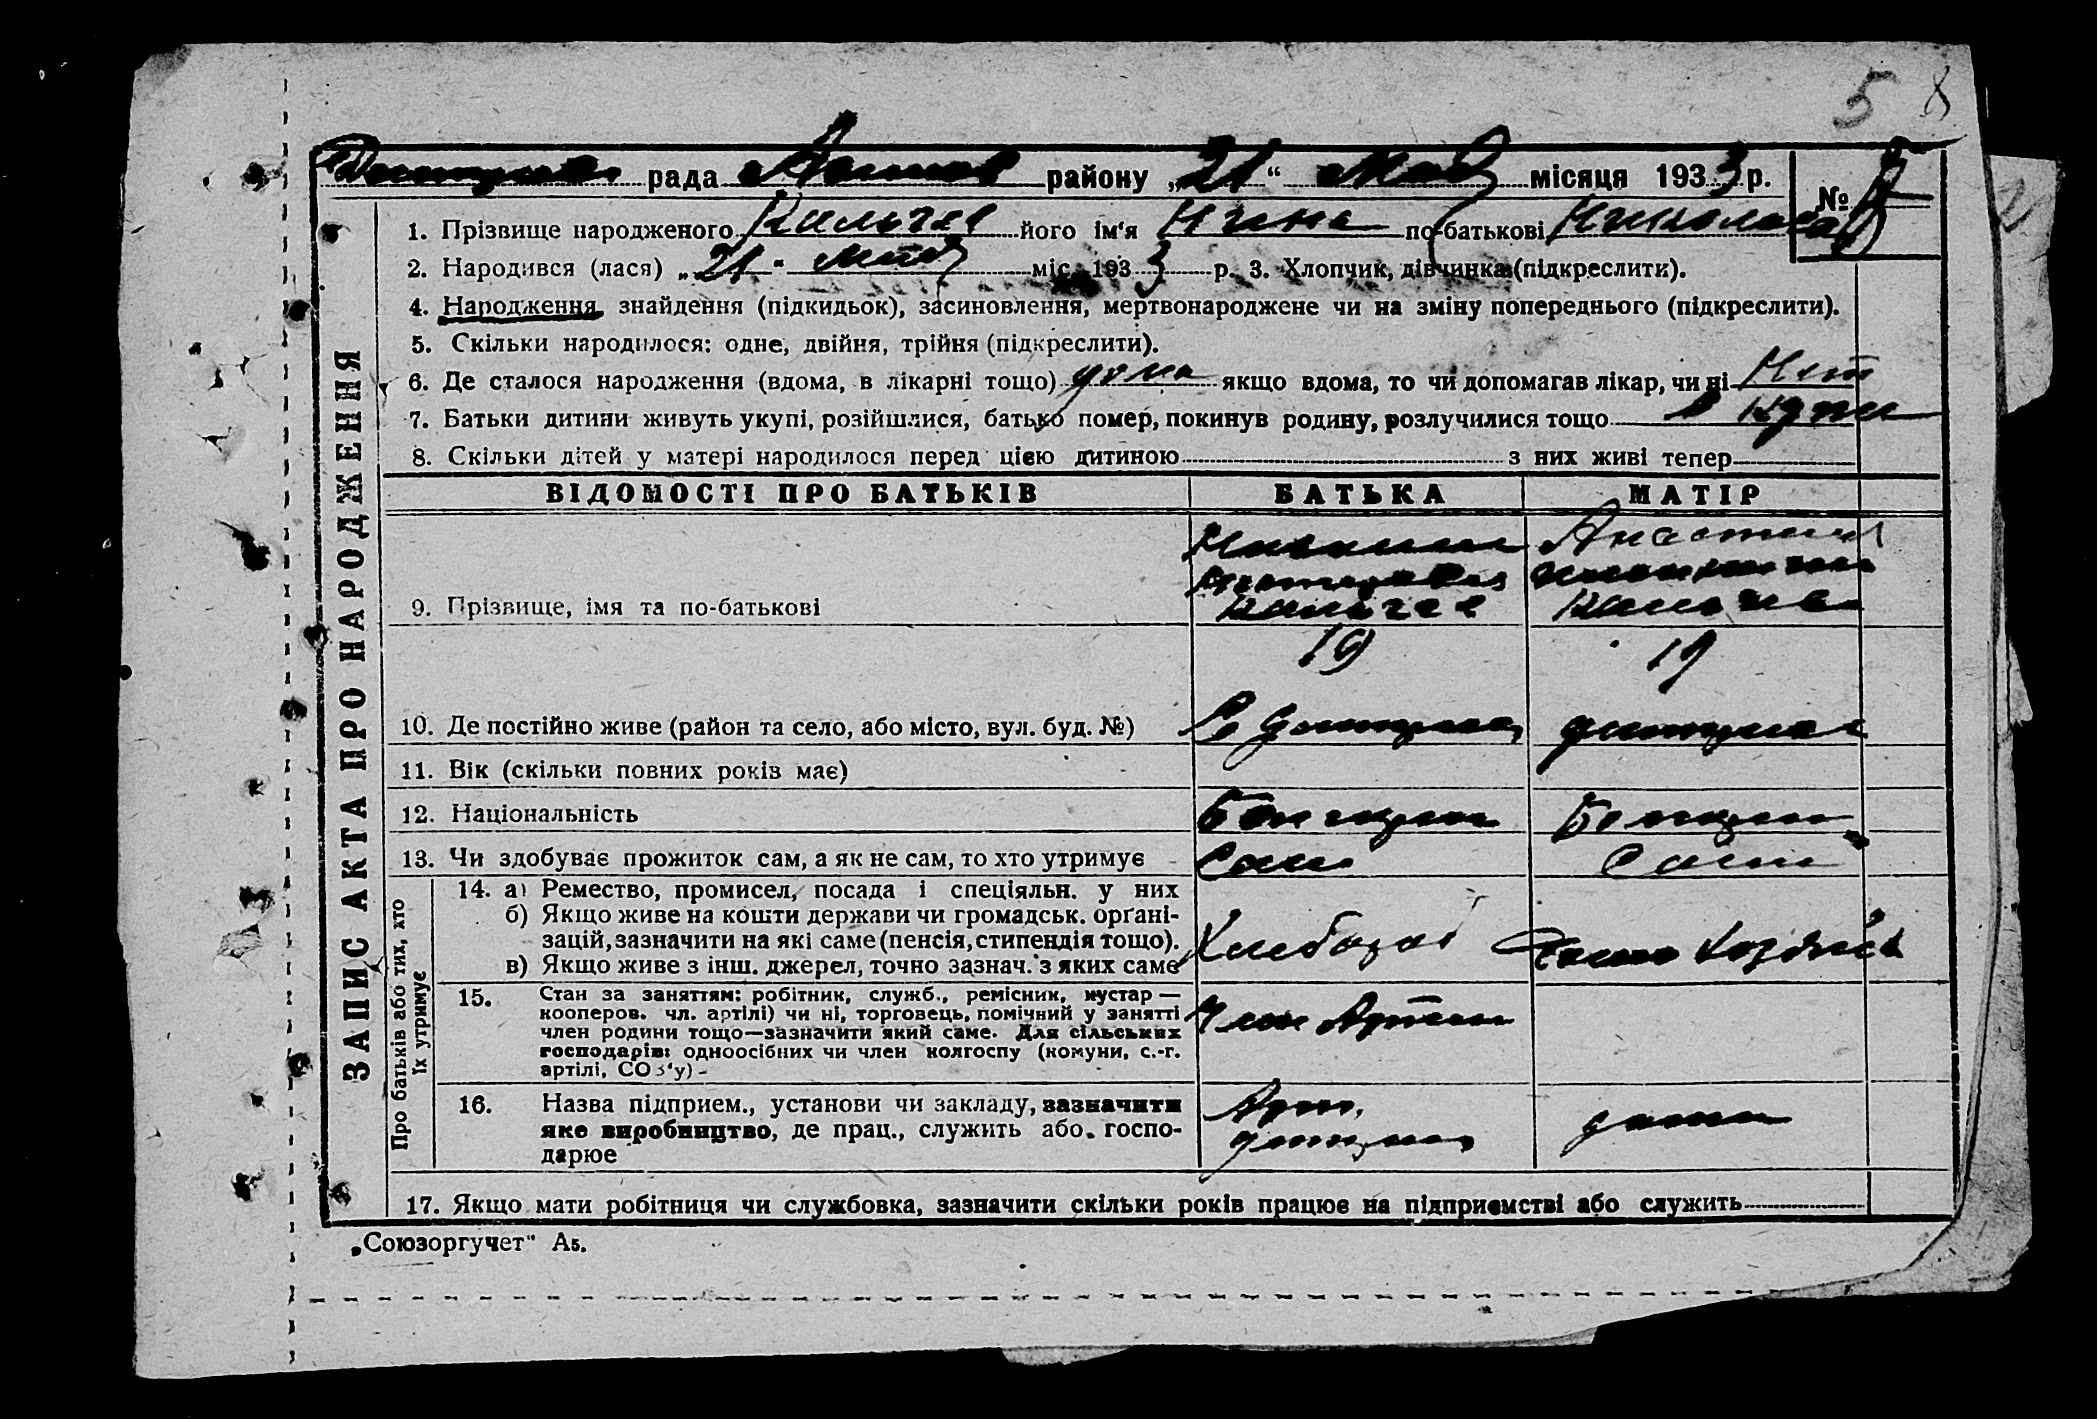 5 8
рада района району „21“ Мая місяця 1933 р. №
1. Прізвище народженого Кальчев його ім'я Нина по-батькові Николаева
2. Народився (лася) „21“ мая міс. 1933 р. 3. Хлопчик, дівчинка (підкреслити).
4. Народження, знайдення (підкидьок), засиновлення, мертвонароджене чи на зміну попереднього (підкреслити).
5. Скільки народилося: одне, двійня, трійня (підкреслити).
6. Де сталося народження (вдома, в лікарні тощо) дома якщо вдома, то чи допомагав лікар, чи ні Нет
7. Батьки дитини живуть укупі, розійшлися, батько помер, покинув родину, розлучилися тощо в купи
8. Скільки дітей у матері народилося перед цією дитиною з них живі тепер
ВІДОМОСТІ ПРО БАТЬКІВ БАТЬКА МАТІР
Николай Анастасия
9. Прізвище, імя та по-батькові Кальчев Кальчева
19 19
10. Де постійно живе (район та село, або місто, вул. буд. №)
11. Вік (скільки повних років має)
12. Національність Болгарин Болгарин
13. Чи здобуває прожиток сам, а як не сам, то хто утримує Сам Сами
14. а) Ремество, промисел, посада і спеціяльн. у них
б) Якщо живе на кошти держави чи громадськ. орґані-
зацій, зазначити на які саме (пенсія, стипендія тощо). Хлебороб
в) Якщо живе з інш. джерел, точно зазнач. з яких саме
15. Стан за заняттям: робітник, служб., ремісник, кустар —
кооперов. чл. артілі) чи ні, торговець, помічний у занятті Член Артели
член родини тощо—зазначити який саме. Для сільських
господарів: одноосібних чи член колгоспу (комуни, с.-г.
артілі, СОЗ'у) -
16. Назва підприєм., установи чи закладу, зазначити Арт. дома
яке виробництво, де прац., служить або госпо-
дарює
17. Якщо мати робітниця чи службовка, зазначити скільки років працює на підприємстві або служить
„Союзоргучет" А5.
ЗАПИС АКТА ПРО НАРОДЖЕННЯ
Про батьків або тих, хто
їх утримує